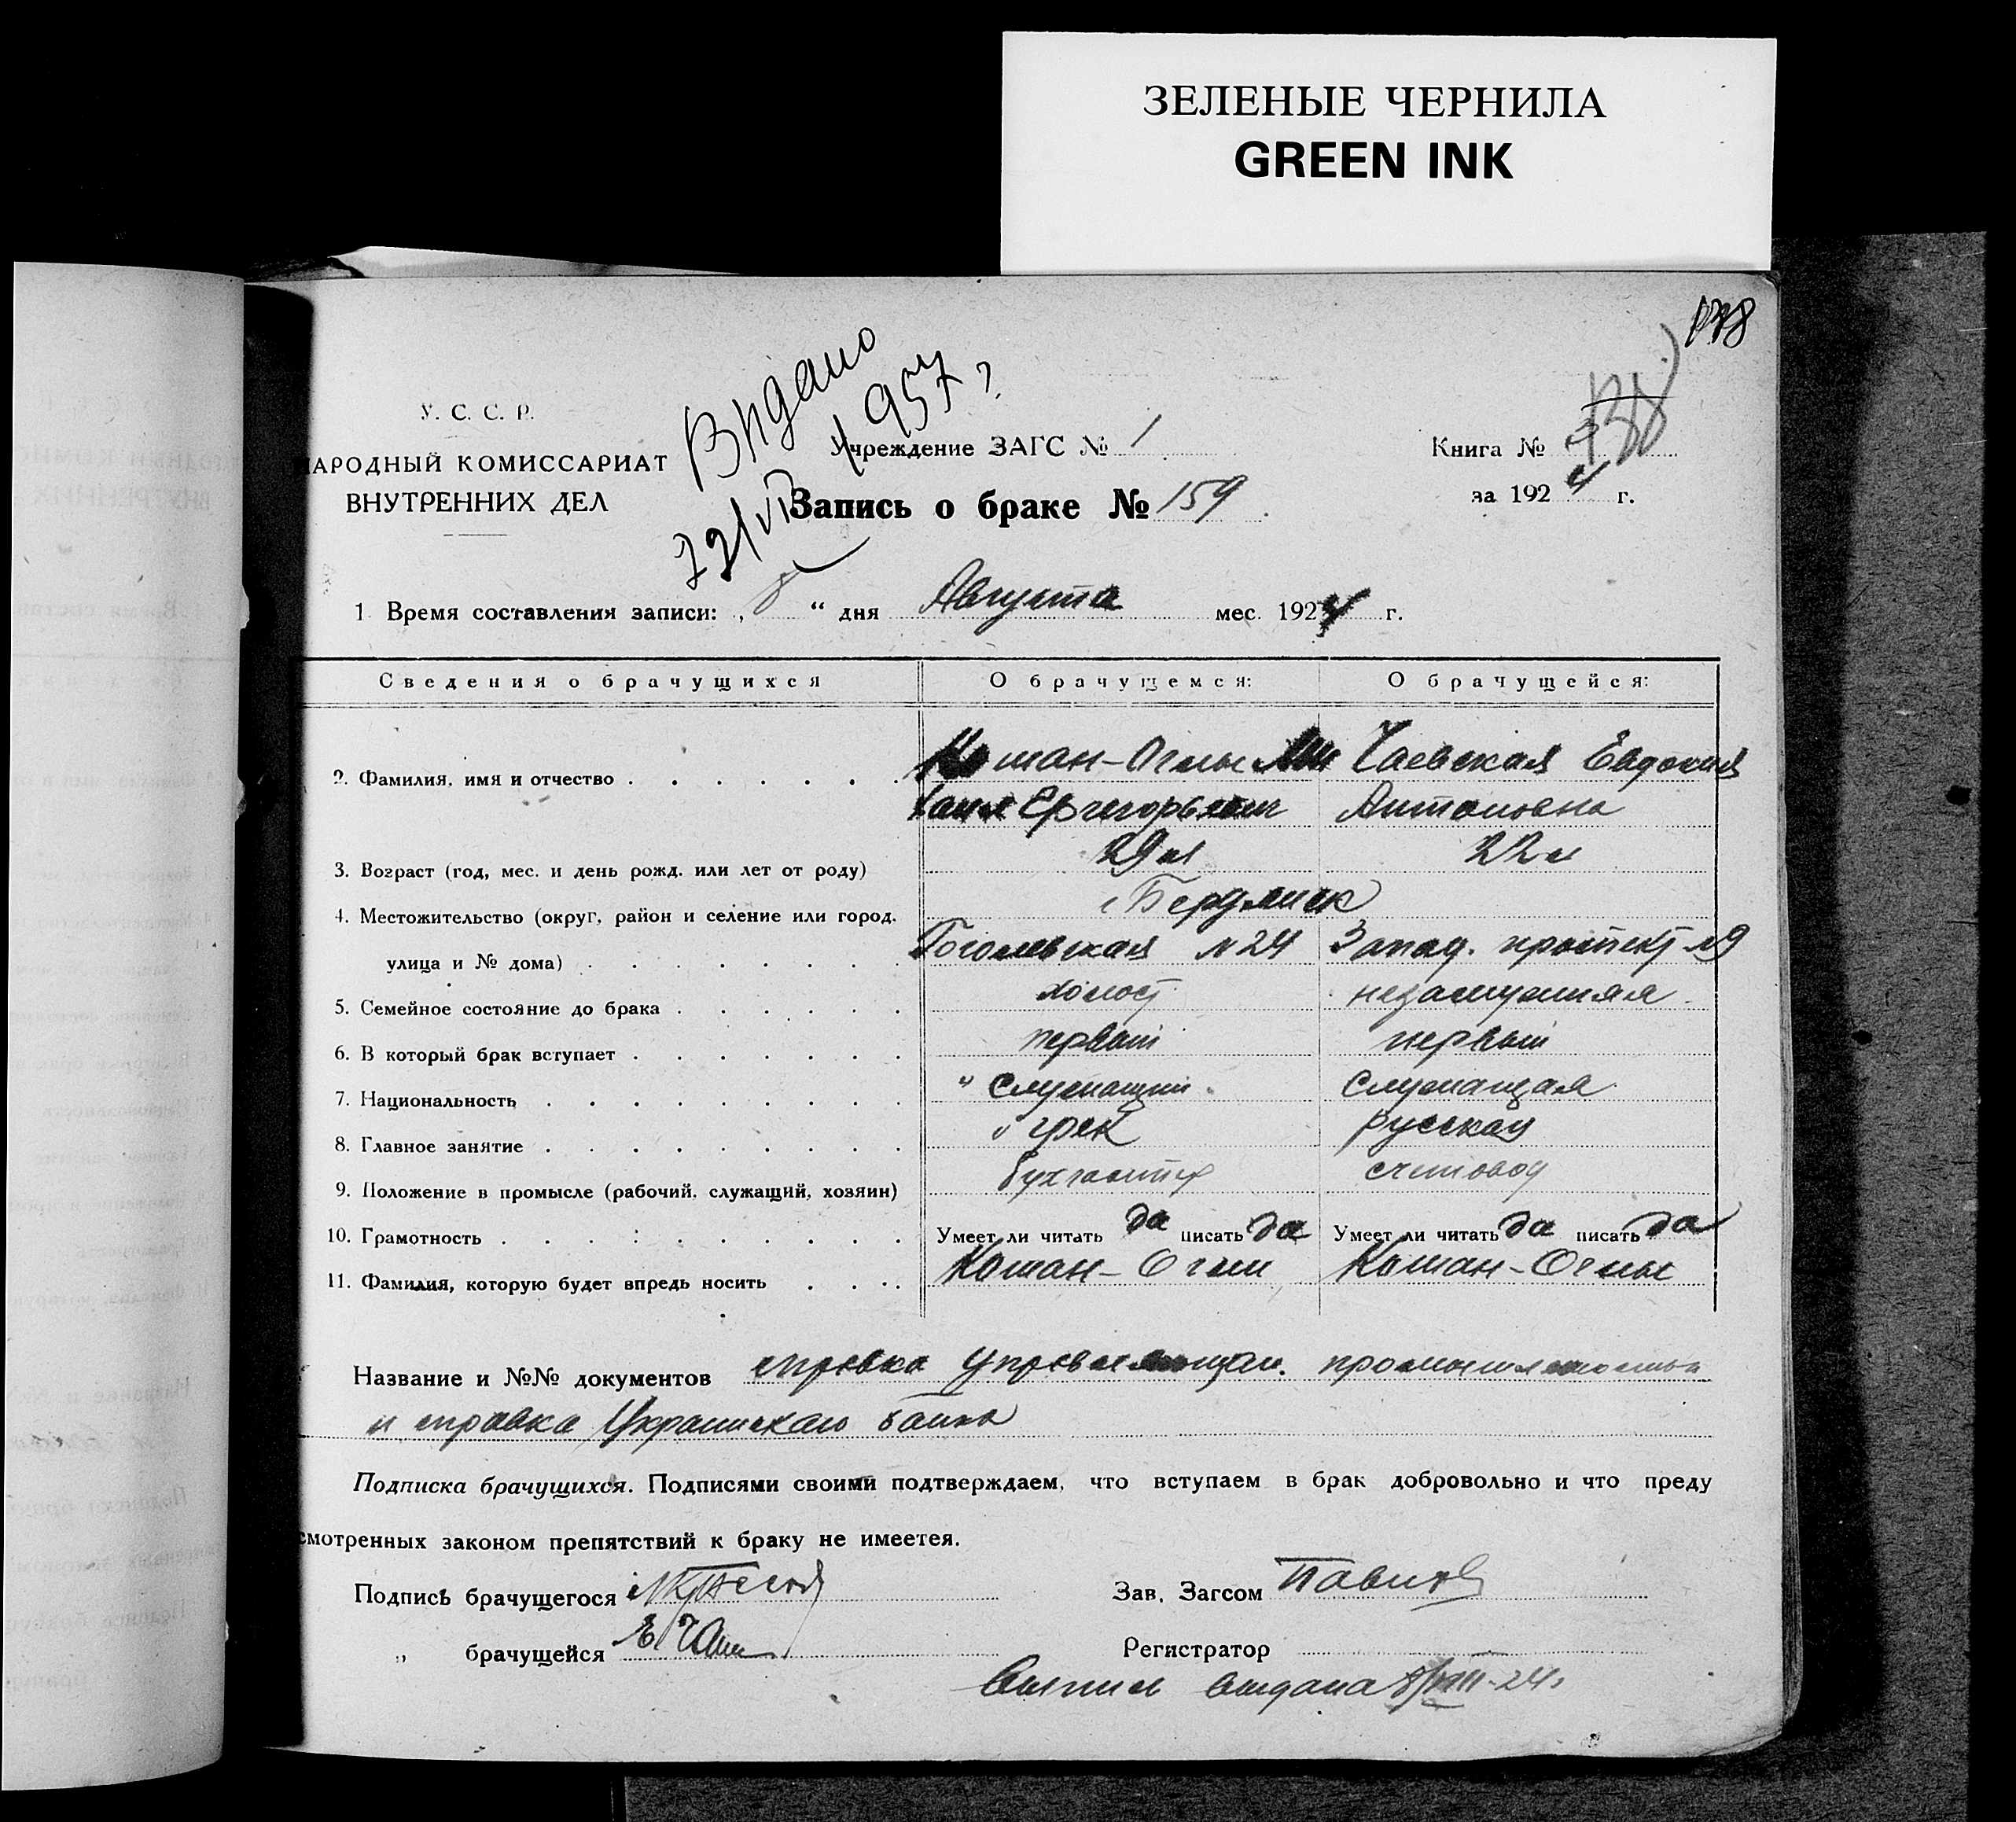 ЗЕЛЕНЫЕ ЧЕРНИЛА
GREEN INK
У. С. С. Р.
НАРОДНЫЙ КОМИССАРИАТ
ВНУТРЕННИХ ДЕЛ
Видано
1957
Учреждение ЗАГС № 1
Книга №
за 1924 г.
Запись о браке № 159
1. Время составления записи: „8“ дня Августа мес. 1924 г.
Сведения о брачущихся О брачущемся: О брачущейся:
2. Фамилия, имя и отчество Кошан-Оглы Чаевская Евдокия
Антоновна
3. Возраст (год, мес. и день рожд. или лет от роду) 29 л 22 л
4. Местожительство (округ, район и селение или город,
улица и № дома) Гоголевская № 24 Запад. проспект №9
5. Семейное состояние до брака холост незамужняя
6. В который брак вступает первый первый
7. Национальность служащий служащая
8. Главное занятие грек русская
9. Положение в промысле (рабочий, служащий, хозяин) бухгалтер счетовод
10. Грамотность Умеет ли читать да писать да Умеет ли читать да писать да
11. Фамилия, которую будет впредь носить Кошан-Оглы Кошан-Оглы
Название и №№ документов справка
и справка Украинскаго банка
Подписка брачущихся. Подписями своими подтверждаем, что вступаем в брак добровольно и что преду
смотренных законом препятствий к браку не имеетея.
Подпись брачущегося
Зав. Загсом
„ брачущейся
Регистратор
Выпись выдана 8/VIII-24